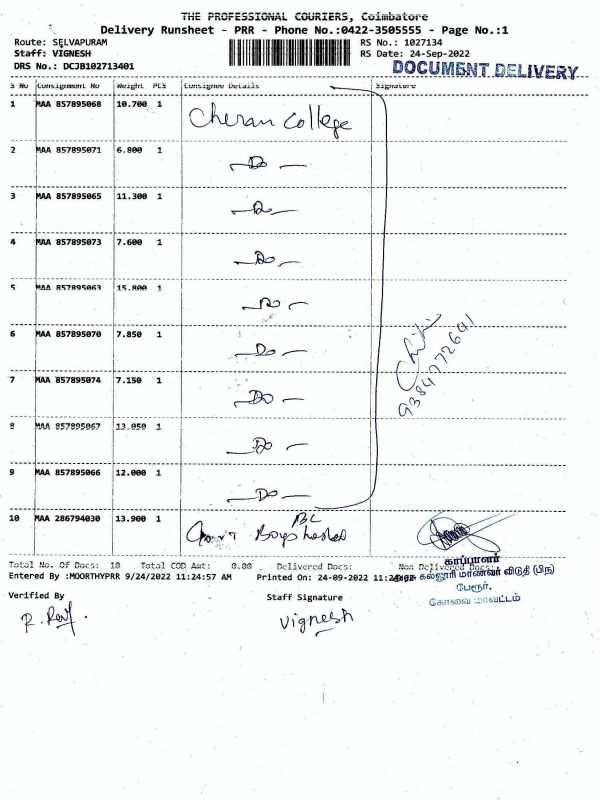 THE PROFESSIONAL COURIERS, Coimbatore
Delivery Runsheet - PRR - Phone No.:0422-3505555 - Page No.:1
Route: SELVAPURAM
Staff: VIGNESH
DRS No.: DCJB102713401
RS No.: 1027134
RS Date: 24-Sep-2022
DOCUMENT DELIVERY
S No Consignment No Weight PCS Consignee Details Signature
1 MAA 857895068 10.700 1 Cheran College
2 MAA 857895071 6.800 1 — Do —
3 MAA 857895065 11.300 1 — Do —
4 MAA 857895073 7.600 1 — Do —
5 MAA 857895063 15.800 1 — Do —
6 MAA 857895070 7.850 1 — Do —
7 MAA 857895074 7.150 1 — Do —
8 MAA 857895067 13.050 1 — Do —
9 MAA 857895066 12.000 1 — Do —
9384772641
10 MAA 286794030 13.900 1 BC Boys hostel
Total No. Of Docs: 10 Total COD Amt: 0.00 Delivered Docs: Non Delivered Docs:
Entered By :MOORTHYPRR 9/24/2022 11:24:57 AM Printed On: 24-09-2022 11:24
காப்பாளர்
கல்லூரி மாணவர் விடுதி (பிந)
பேரூர்,
கோவை மாவட்டம்
Verified By Staff Signature
Vignesh